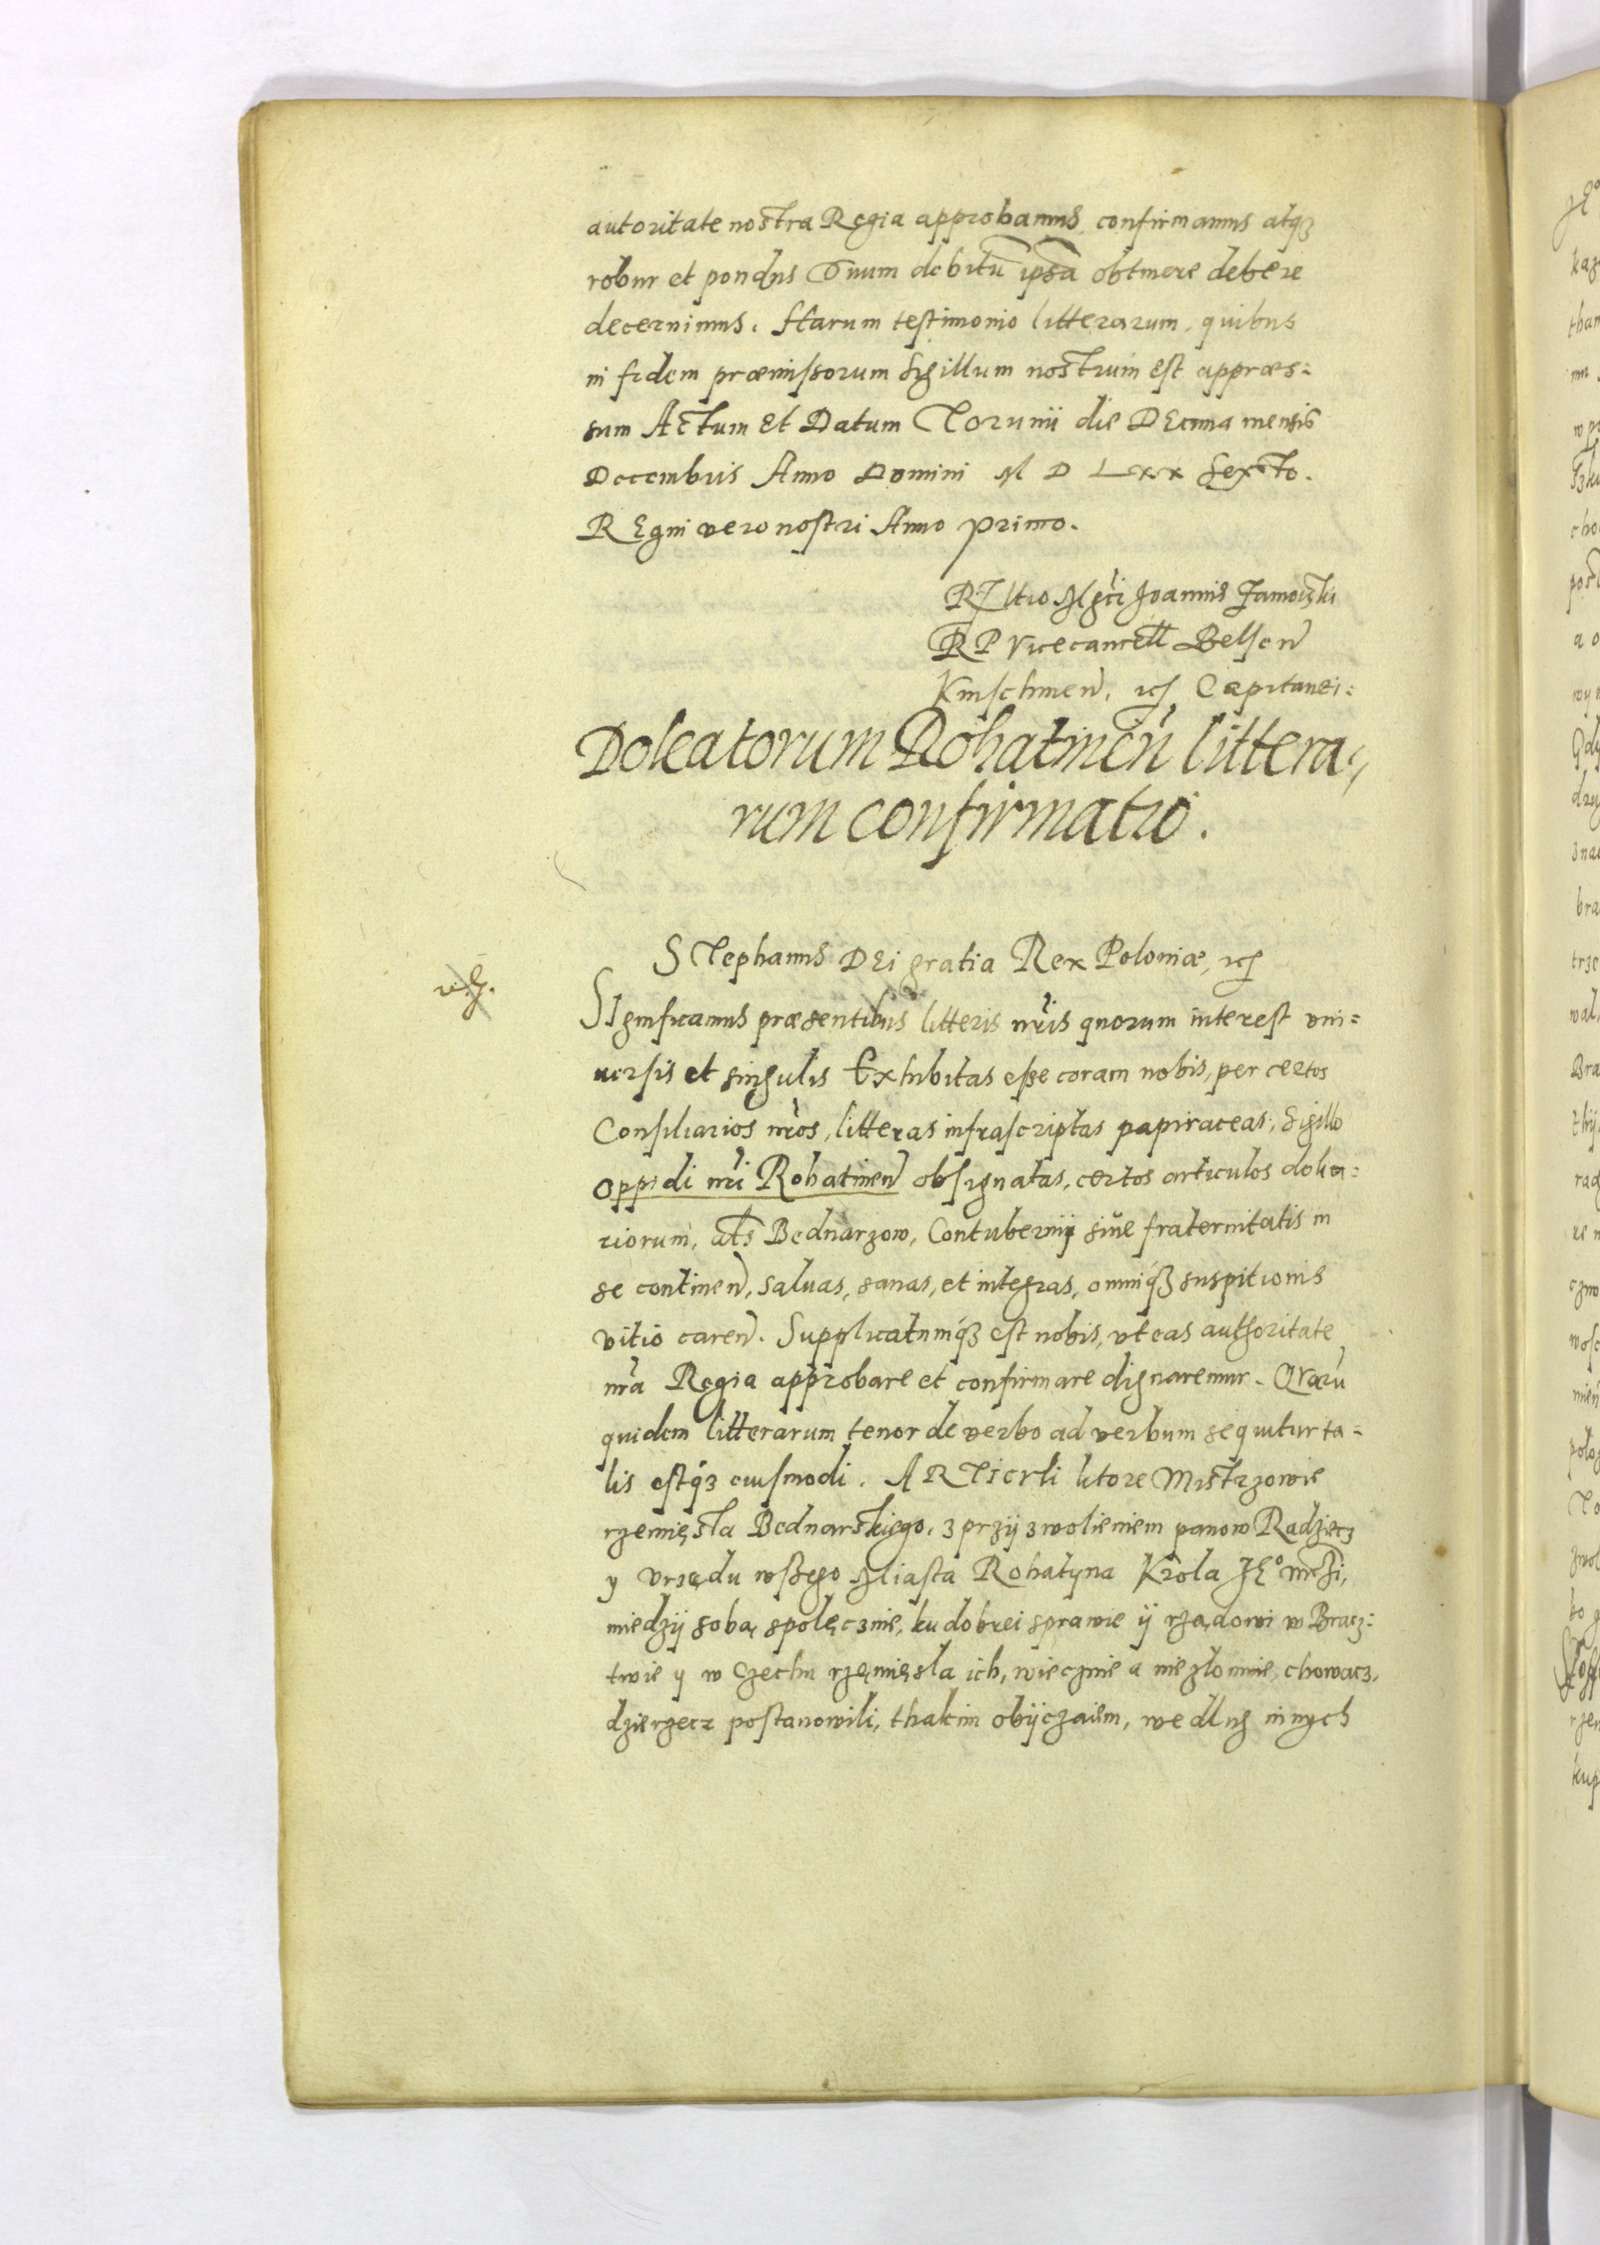 autoritate nostra Regia approbamus confirmamus atq3
robur et pondus suum debitū ipsa obtinere debere
decernimus. Harum testimonio litterarum, quibus
in fidem præmissorum sigillum nostrum est appræs:
sum Actum et Datum Torunii die Decima mensis
Decembris Anno Domini M D Lxx sexto.
REgni vero nostri Anno primo.
Rltio Mgci Joannis Zamoiski
RP Vicecancell Belsen
Knischinen, Capitanei:
Doleatorum Rohatinen littera,
rum confirmatio.
STephanus DEi gratia Rex Poloniæ,
SIgnificamus præsentibus litteris nris quorum interest vni=
uersis et singulis Exhibitas esse coram nobis, per certos
Consiliarios nros, litteras infrascriptas papiraceas, sigillo
oppidi nri Rohatinen obsignatas, certos articulos dolea=
riorum, als Bednarzow, Contubernij siue fraternitatis in
se continen, saluas, sanas, et integras, omniq3 suspitionis
vitio caren. Supplicatumq3 est nobis, vt eas authoritate
nra Regia approbare et confirmare dignaremur. Qvarū
quidem litterarum tenor de verbo ad verbum sequitur ta=
lis estq3 eiusmodi. ARTicvli ktore Mistrzowie
rzemięsla Bednarskiego, z przyzwolieniem panow Radziecz
y vrzędu wszego Miasta Rohatyna Krola JEº mczi,
miedzÿ sobą spolęcznie, ku dobrei sprawie ÿ rządowi w Bracz:
twie y w czechu rzęmięsla ich, wiecznie a niezlomnie, chowacz,
dzierzecz postanowili, thakim obÿczaiem, wedlug innych